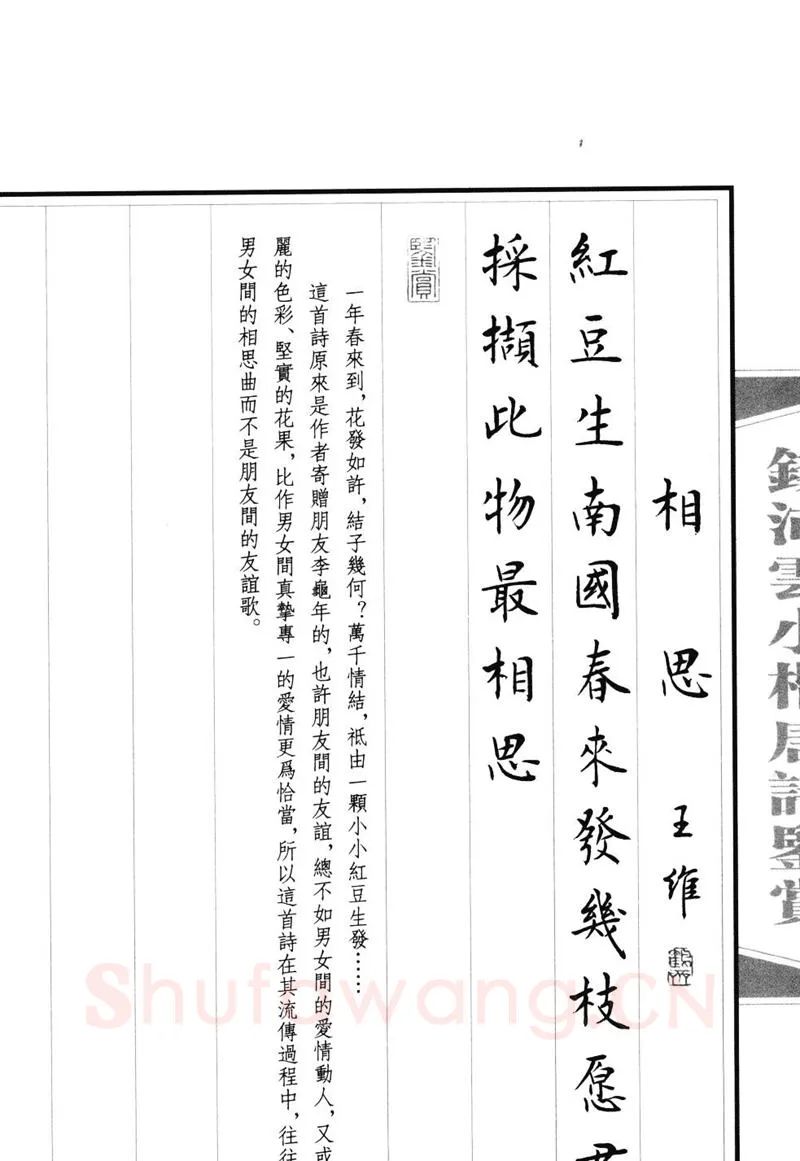 相思 王維
紅豆生南國春來發幾枝愿君
採擷此物最相思
鑒賞
一年春來到，花發如許，結子幾何？萬千情結，祗由一顆小小紅豆生發……
這首詩原來是作者寄贈朋友李龜年的，也許朋友間的友誼，總不如男女間的愛情動人，又或
麗的色彩、堅實的花果，比作男女間真摯專一的愛情更爲恰當，所以這首詩在其流傳過程中，往往
男女間的相思曲而不是朋友間的友誼歌。
雲小楷唐詩鑒賞
Shufawang.CN